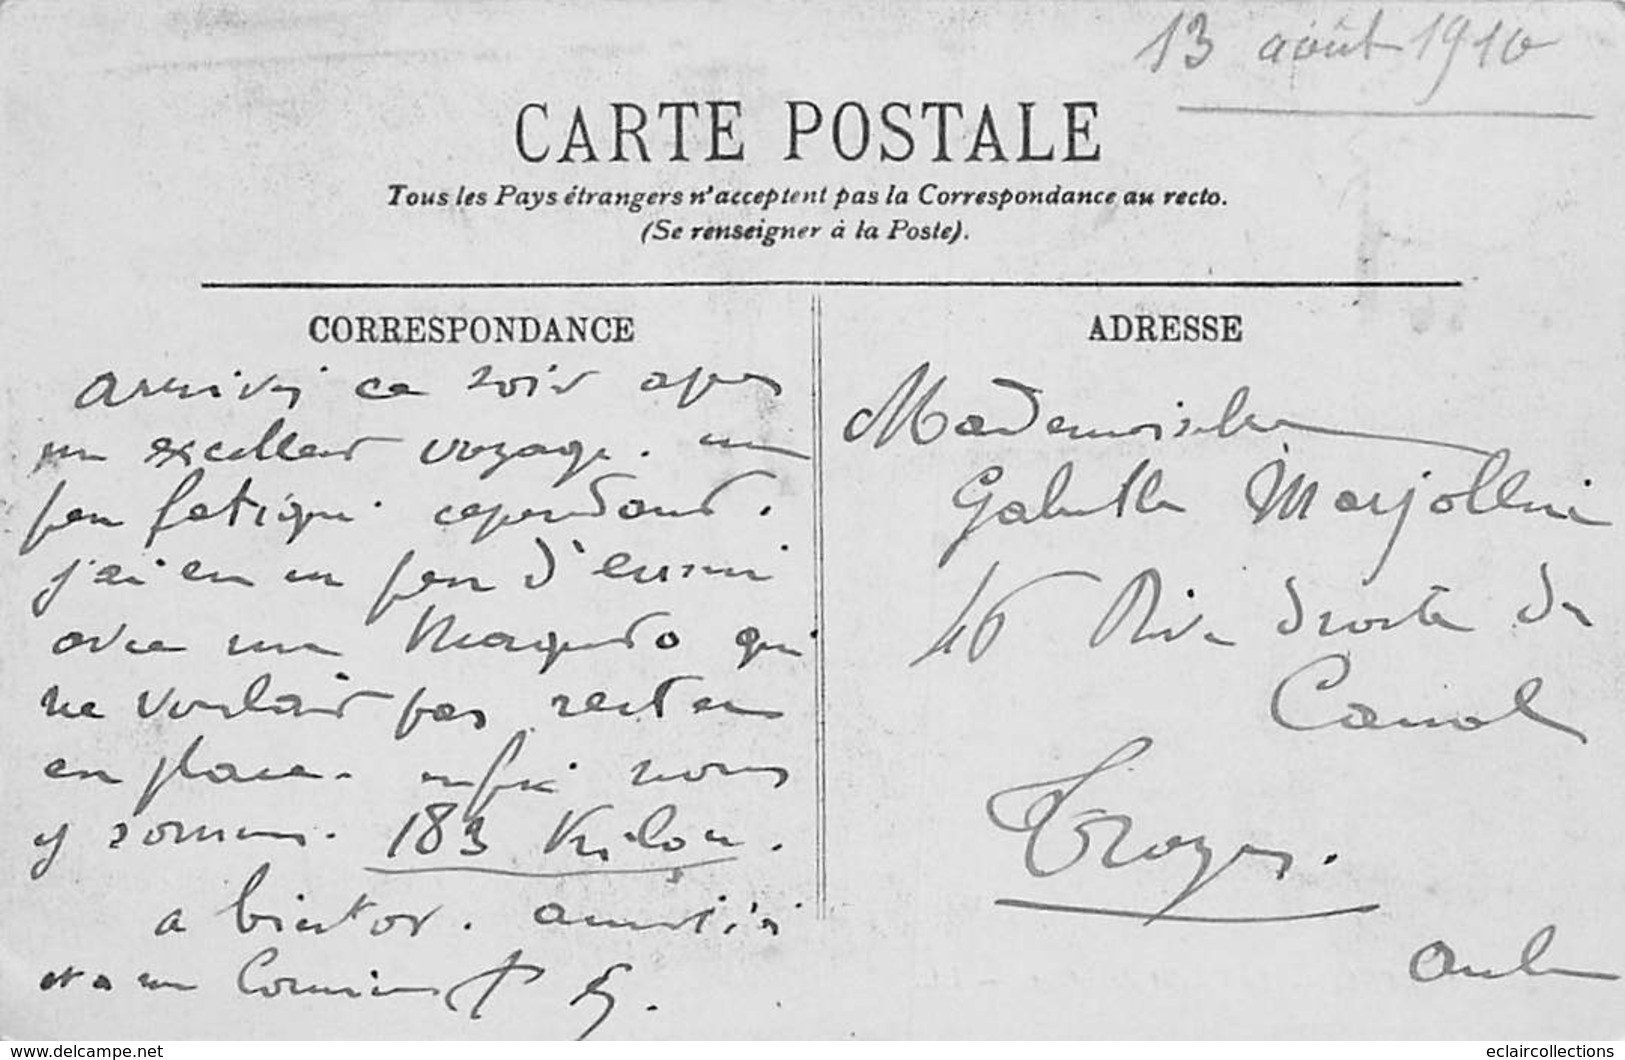 13 août 1910
CARTE POSTALE
Tous les Pays étrangers n'acceptent pas la Correspondance au recto.
(Se renseigner à la Poste).
CORRESPONDANCE
arrivés ce soir apres
un excellent voyage. un
peu fatigué cependant.
j'ai eu un peu d'ennui
avec une qui
ne voulait pas rester
en place. enfin nous
y sommes. 183 Kilom.
a bientot. amitiés
et a un
ADRESSE
Mademoiselle
Gabrielle Marjollin
16 Rive droite du
Canal
Troyes.
Aube
www.delcampe.net
eclaircollections